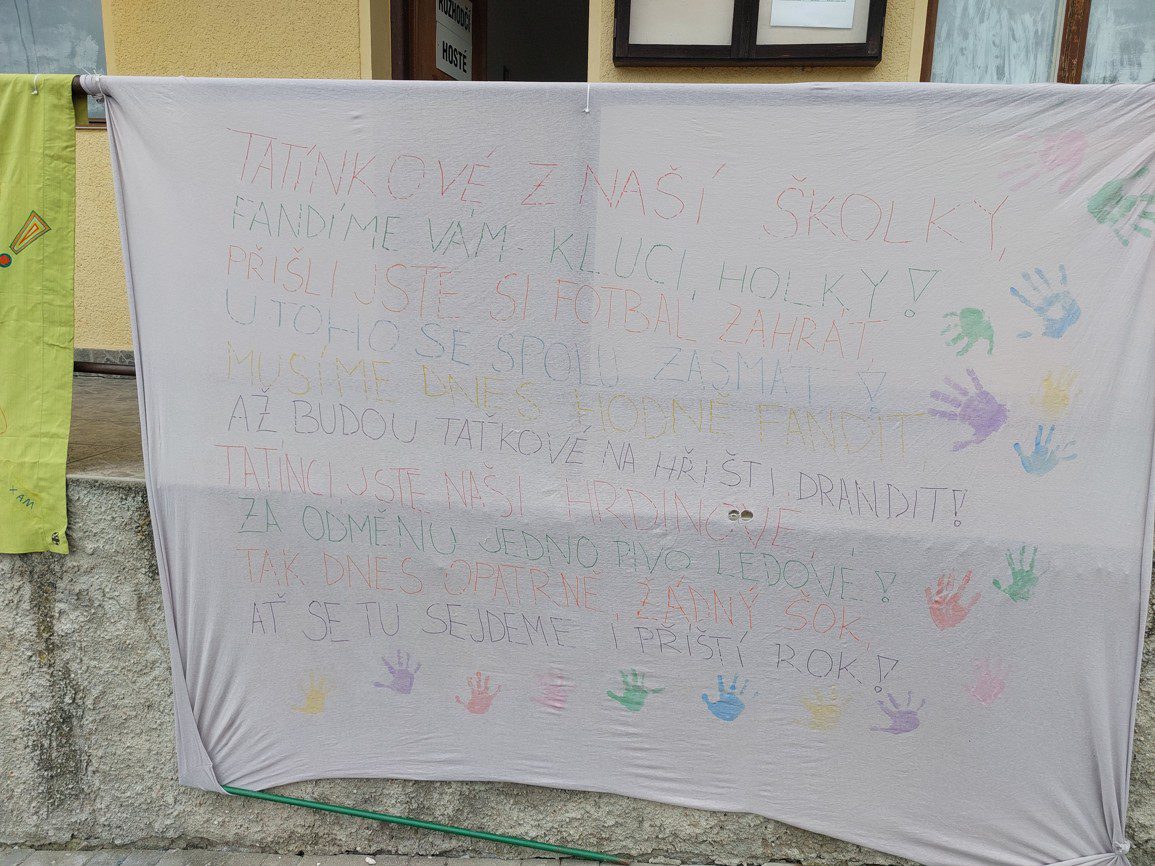 ROZHODČÍ
HOSTÉ
TATÍNKOVÉ Z NAŠÍ ŠKOLKY,
FANDÍME VÁM - KLUCI, HOLKY!
PŘIŠLI JSTE SI FOTBAL ZAHRÁT,
U TOHO SE SPOLU ZASMÁT!
MUSÍME DNES HODNĚ FANDIT,
AŽ BUDOU TAŤKOVÉ NA HŘIŠTI DRANDIT!
TATÍNCI JSTE NAŠI HRDINOVÉ
ZA ODMĚNU JEDNO PIVO LEDOVÉ!
TAK DNES OPATRNĚ, ŽÁDNÝ ŠOK,
AŤ SE TU SEJDEME I PŘÍŠTÍ ROK!